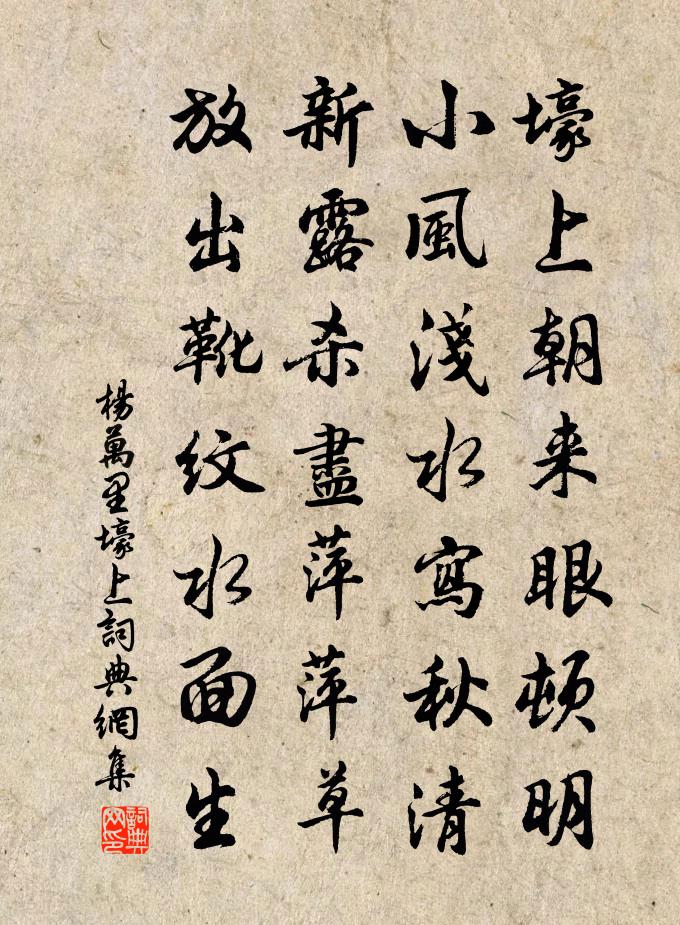 壕上朝来眼頓明
小風淺水寫秋清
新露杀盡萍萍草
放出靴紋水面生
楊萬里壕上詞典網集
詞典网印